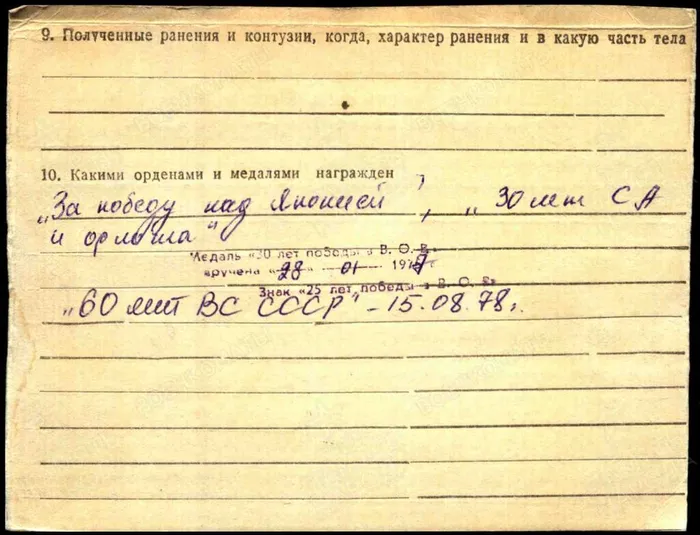 9. Полученные ранения и контузии, когда, характер ранения и в какую часть тела
10. Какими орденами и медалями награжден
„За победу над Японией", „30 лет СА
и флота"
Медаль «30 лет победы в В. О. В.»
вручена «28» 01 197
Знак «25 лет победы в В. О. В»
„60 лет ВС СССР" – 15.08.78г.